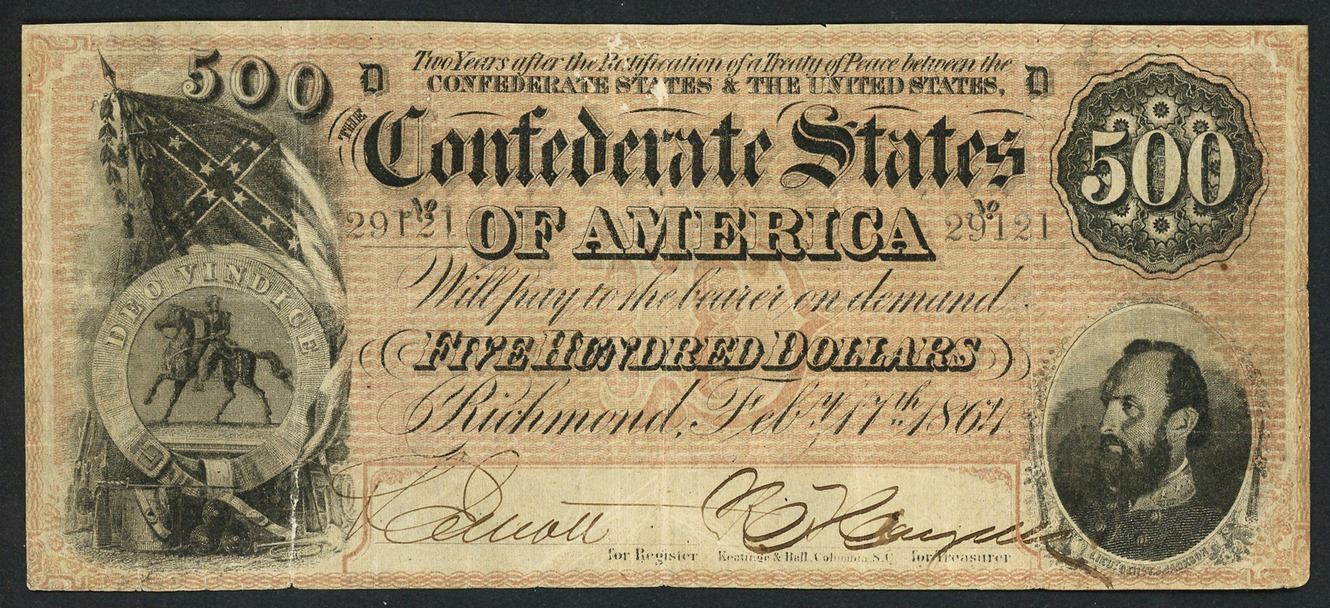 500 D Two Years after the Ratification of a Treaty of Peace between the D
CONFEDERATE STATES & THE UNITED STATES,
THE Confederate States
500
No 29121 OF AMERICA No 29121
Will pay to the bearer on demand
DEO VINDICE
FIVE HUNDRED DOLLARS
Richmond, Feby. 17th 1864
for Register Keatinge & Ball, Columbia, S.C. for Treasurer